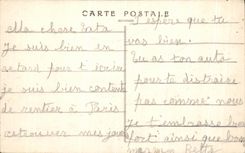 CARTE POSTALE
Ma chère Zeta
Je suis bien en
retard pour t'écrire
je suis bien contente
de rentrer à Paris
retrouver mes
J'espère que tu
vas bien.
Tu as ton auto
pour te distraire
pas comme nous
Je t'embrasse bien
fort ainsi que